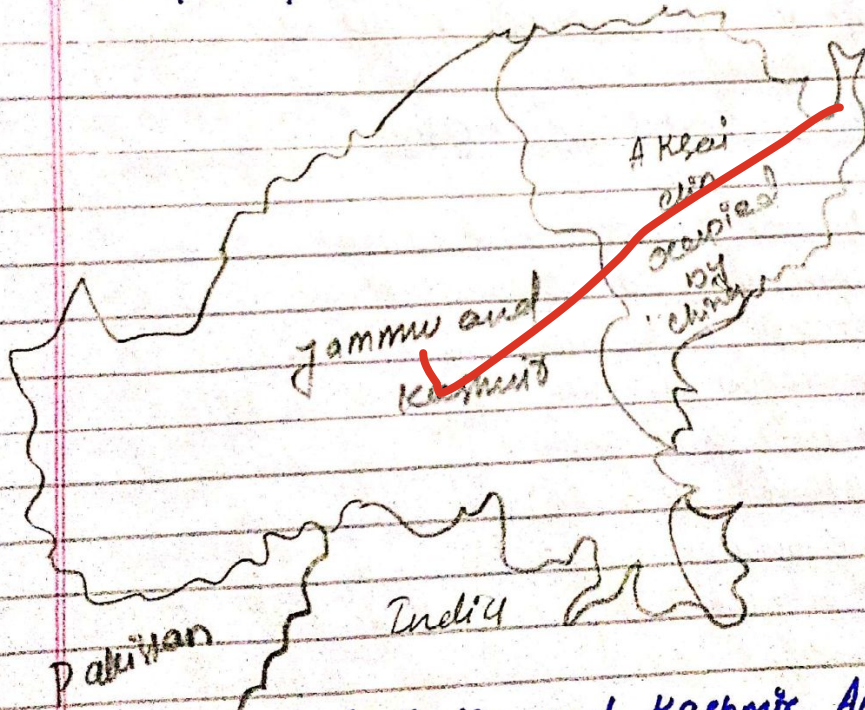 Aksai
chin
occupied
by
china
Jammu and
Kashmir
India
Pakistan
Kashmir